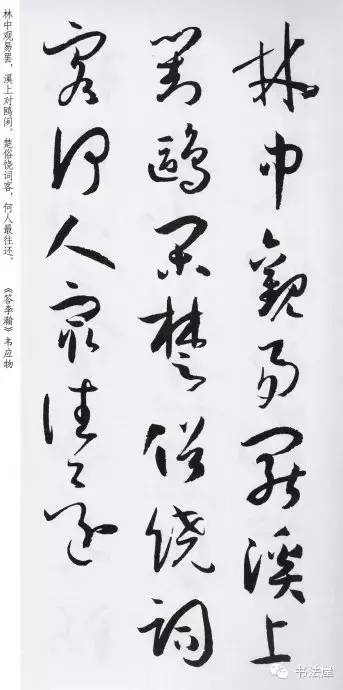 林中觀易罷溪上
對鷗閑楚俗饒詞
客何人最往還
林中观易罢，溪上对鸥闲。楚俗饶词客，何人最往还。 《答李瀚》韦应物
书法屋